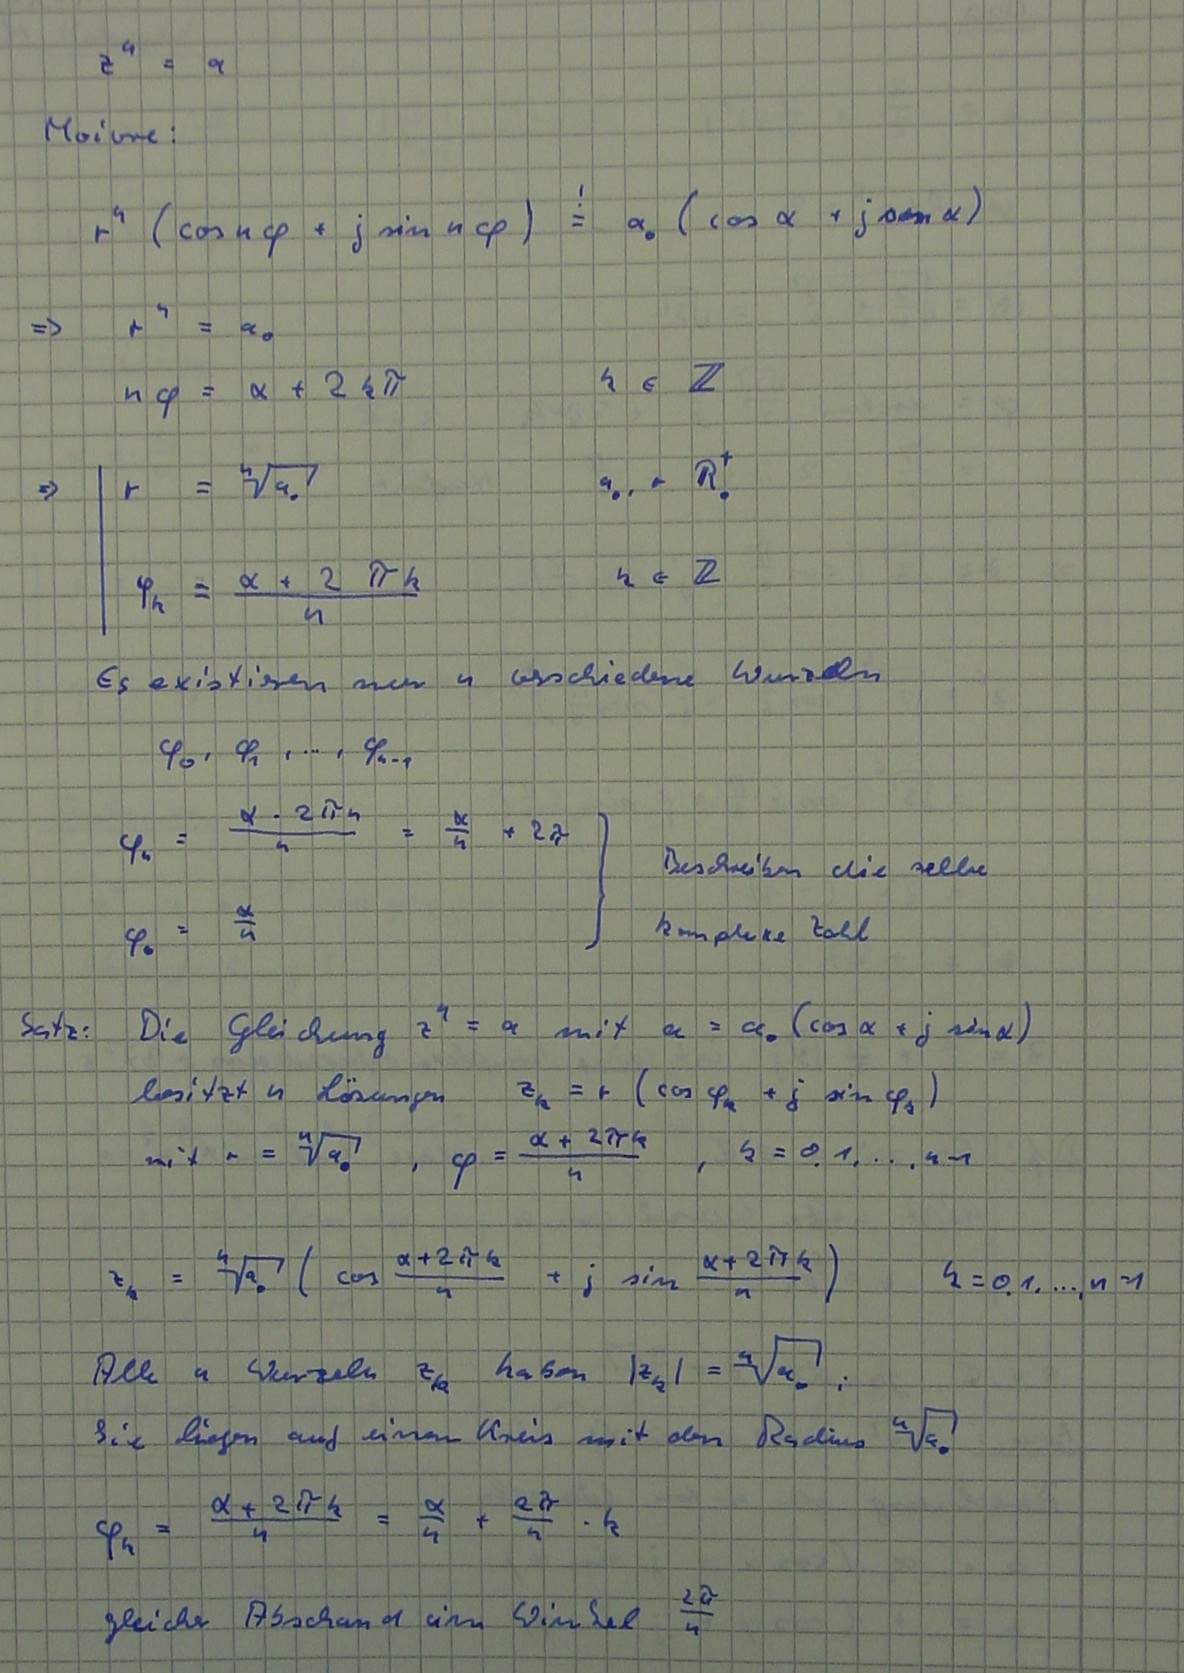 zⁿ = a
Moivre:
rⁿ (cos nφ + j sin nφ) =! a₀ (cos α + j sin α)
=> rⁿ = a₀
nφ = α + 2kπ k ∈ ℤ
=> r = ⁿ√a₀ a₀, r ℝ₀⁺
φₖ = (α + 2πk)/n k ∈ ℤ
Es existieren nur n verschiedene Wurzeln
φ₀, φ₁, ..., φₙ₋₁
φₙ = (α · 2πn)/n = α/n + 2π
φ₀ = α/n
} Beschreiben die selbe
komplexe Zahl
Satz: Die Gleichung zⁿ = a mit a = a₀ (cos α + j sin α)
besitzt n Lösungen zₖ = r (cos φₖ + j sin φₖ)
mit r = ⁿ√a₀ , φ = (α + 2πk)/n , k = 0, 1, ..., n-1
zₖ = ⁿ√a₀ ( cos (α+2πk)/n + j sin (α+2πk)/n ) k = 0, 1, ..., n-1
Alle n Wurzeln zₖ haben |zₖ| = ⁿ√a₀ ;
Sie liegen auf einen Kreis mit den Radius ⁿ√a₀
φₖ = (α + 2πk)/n = α/n + 2π/n · k
gleicher Abstand im Winkel 2π/n